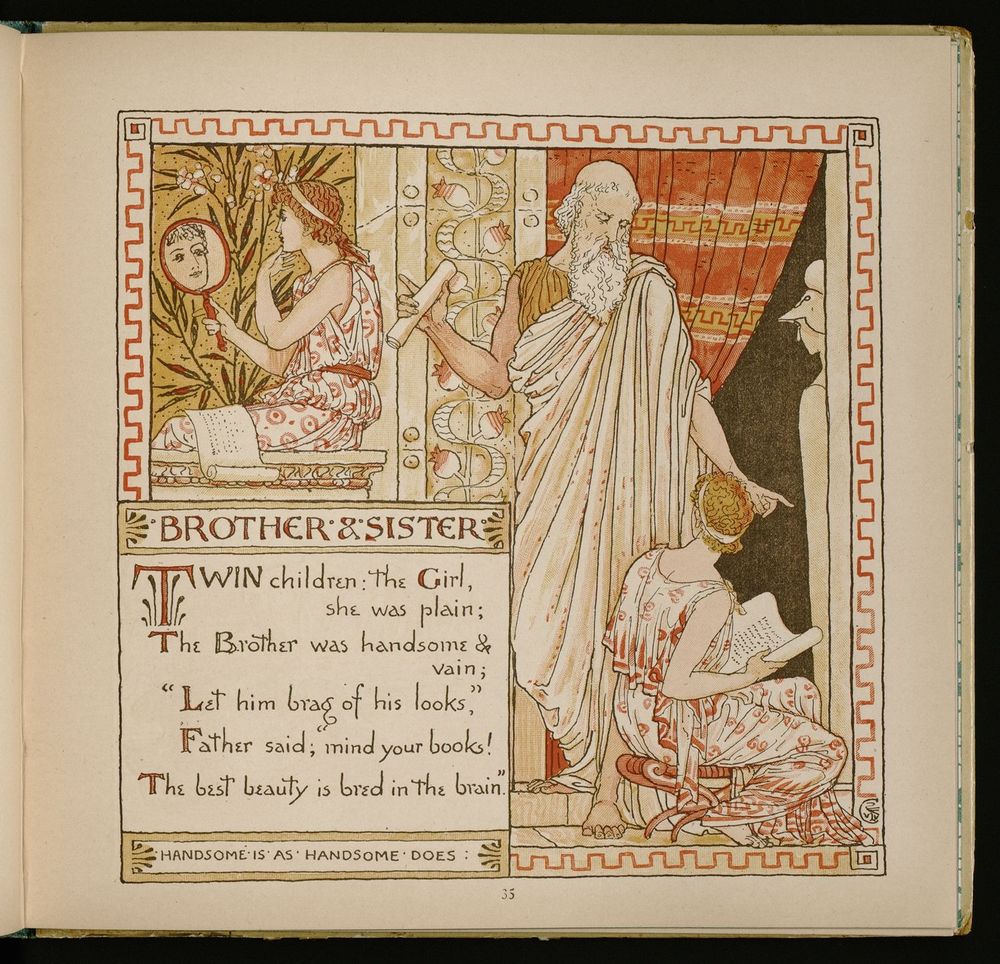 BROTHER·&·SISTER
TWIN children: the Girl,
she was plain;
The Brother was handsome &
vain;
“Let him brag of his looks,”
Father said; “mind your books!
The best beauty is bred in the brain.”
HANDSOME·IS·AS·HANDSOME·DOES:
35